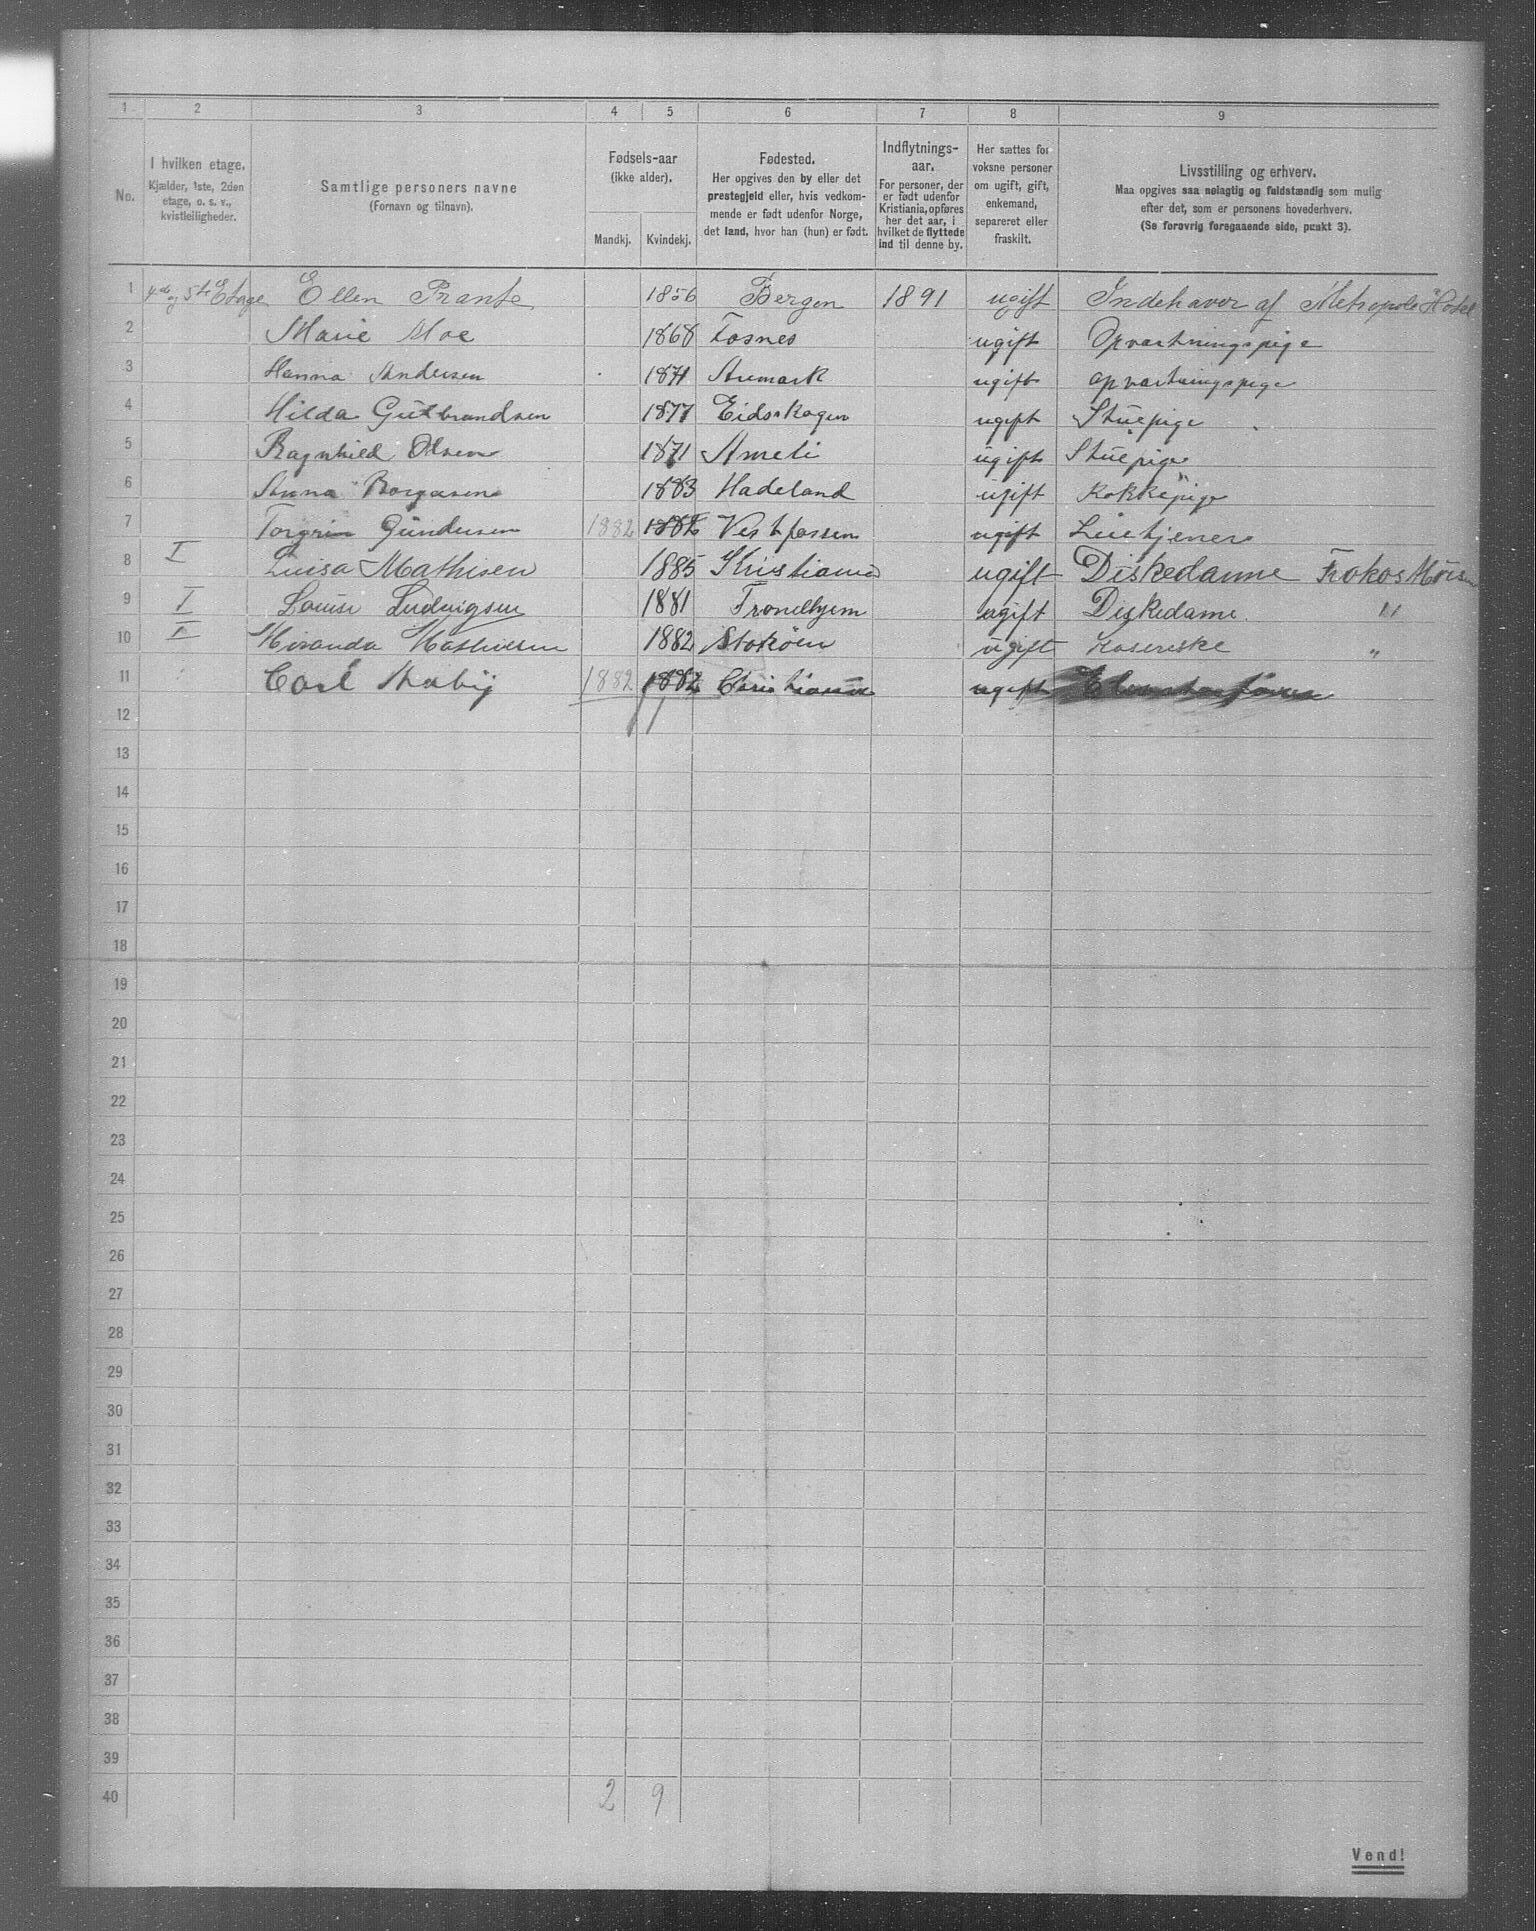 1 2 3 4 5 6 7 8 9
No.
I hvilken etage.
Kjælder, 1ste, 2den
etage, o. s. v.,
kvistleiligheder.
Samtlige personers navne
(Fornavn og tilnavn).
Fødsels-aar
(ikke alder).
Mandkj. Kvindekj.
Fødested.
Her opgives den by eller det
prestegjeld eller, hvis vedkom-
mende er født udenfor Norge,
det land, hvor han (hun) er født.
Indflytnings-
aar.
For personer, der
er født udenfor
Kristiania, opføres
her det aar, i
hvilket de flyttede
ind til denne by.
Her sættes for
voksne personer
om ugift, gift,
enkemand,
separeret eller
fraskilt.
Livsstilling og erhverv.
Maa opgives saa nøiagtig og fuldstændig som mulig
efter det, som er personens hovederhverv.
(Se forøvrig foregaaende side, punkt 3).
1 4de og 5te Etage Ellen Prante 1856 Bergen 1891 ugift Indehaver af Metropole Hotel
2 Marie Moe 1868 Fosnes ugift Opvartningspige
3 Hanna Andersen 1871 Aremark ugift opvartningspige
4 Hilda Gutbrandsen 1877 Eidskogen ugift Stuepige
5 Ragnhild Olsen 1871 Ameli ugift Stuepige
6 Anna Borgesen 1883 Hadeland ugift Kokkepige
7 Torgrim Gundersen 1882 1882 Vestfossen ugift
8 I Luisa Mathisen 1885 Kristiania ugift Diskedamme Frokost
9 I Louise Ludvigsen 1881 Trondhjem ugift Diskedame "
10 II Mathisen 1882 Stoköen ugift Kasererske "
11 Carl 1882 1882 Christiania ugift
12
13
14
15
16
17
18
19
20
21
22
23
24
25
26
27
28
29
30
31
32
33
34
35
36
37
38
39
40 2 9
Vend!